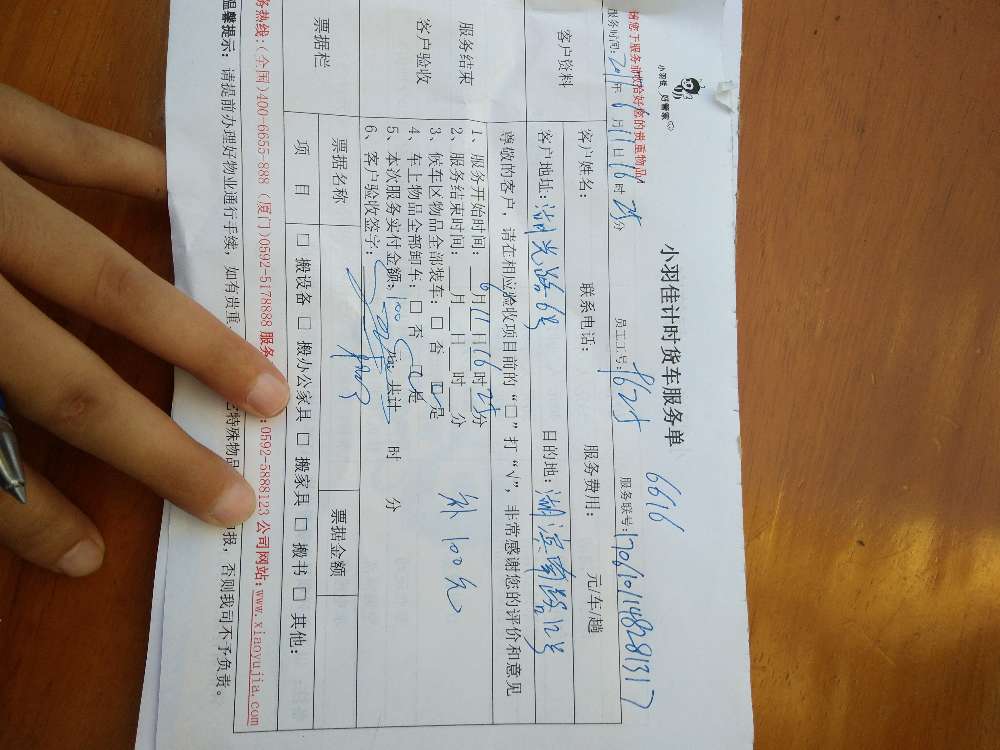 小羽佳 好管家
小羽佳计时货车服务单
6616
请您于服务前收拾好您的贵重物品！
服务时间：2017年6月11日16时25分 员工工号：9625 服务联号：
客户资料 客户姓名： 联系电话： 服务费用： 元/车/趟
客户地址：湖光路6号 目的地：湖滨南路12号
尊敬的客户，请在相应验收项目前的“□”打“√”，非常感谢您的评价和意见
服务结束
客户验收
1、服务开始时间：6月11日16时25分
2、服务结束时间：__月__日__时__分
3、候车区物品全部装车：□ 否 □是
4、车上物品全部卸车：□ 否 □是
5、本次服务实付金额：100 元；共计 时 分
6、客户验收签字：
补100元
票据栏 票据名称 票据金额
项 目 □ 搬设备 □ 搬办公家具 □ 搬家具 □ 搬书 □ 其他：
务热线：(全国)400-6655-888 (厦门)0592-5178888 服务 :0592-5888123 公司网站：www.xiaoyujia.com
温馨提示：请提前办理好物业通行手续，如有贵重 特殊物品 报，否则我司不予负责。